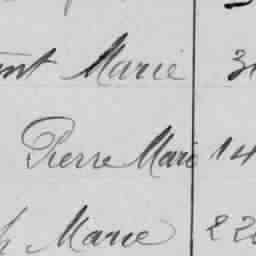 Marie
Pierre Marie 14
Marie 22